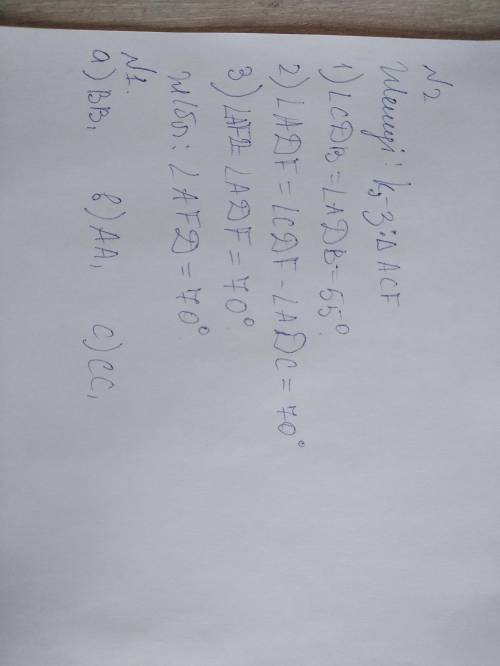 N2
Шешуі: k5-3: Δ ACF
1) ∠CDB = ∠ADB = 55°
2) ∠ADF = ∠CDF - ∠ADC = 70°
3) ∠AFD = ∠ADF = 70°
Ж/бы: ∠AFD = 70°
N1.
a) BB₁ b) AA₁ c) CC₁